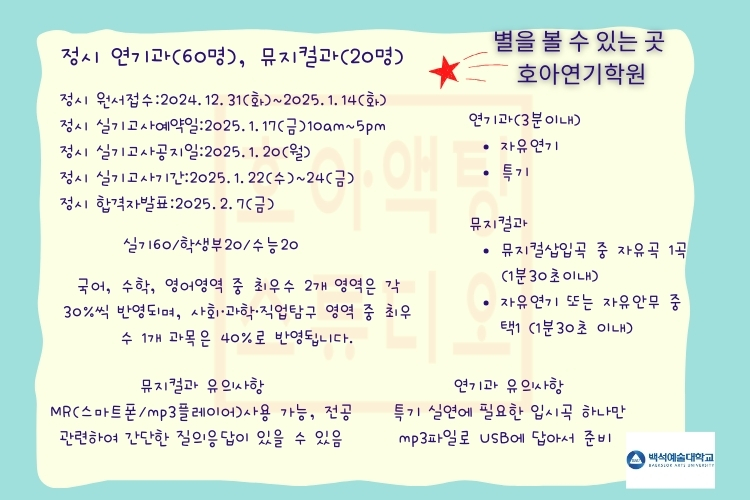 정시 연기과(60명), 뮤지컬과(20명)
별을 볼 수 있는 곳
호아연기학원
정시 원서접수:2024.12.31(화)~2025.1.14(화)
정시 실기고사예약일:2025.1.17(금)10am~5pm
정시 실기고사공지일:2025.1.20(월)
정시 실기고사기간:2025.1.22(수)~24(금)
정시 합격자발표:2025.2.7(금)
실기60/학생부20/수능20
국어, 수학, 영어영역 중 최우수 2개 영역은 각
30%씩 반영되며, 사회·과학·직업탐구 영역 중 최우
수 1개 과목은 40%로 반영됩니다.
연기과(3분이내)
• 자유연기
• 특기
뮤지컬과
• 뮤지컬삽입곡 중 자유곡 1곡
(1분30초이내)
• 자유연기 또는 자유안무 중
택1 (1분30초 이내)
뮤지컬과 유의사항
MR(스마트폰/mp3플레이어)사용 가능, 전공
관련하여 간단한 질의응답이 있을 수 있음
연기과 유의사항
특기 실연에 필요한 입시곡 하나만
mp3파일로 USB에 답아서 준비
호아액팅
스튜디오
백석예술대학교
BAEKSEOK ARTS UNIVERSITY